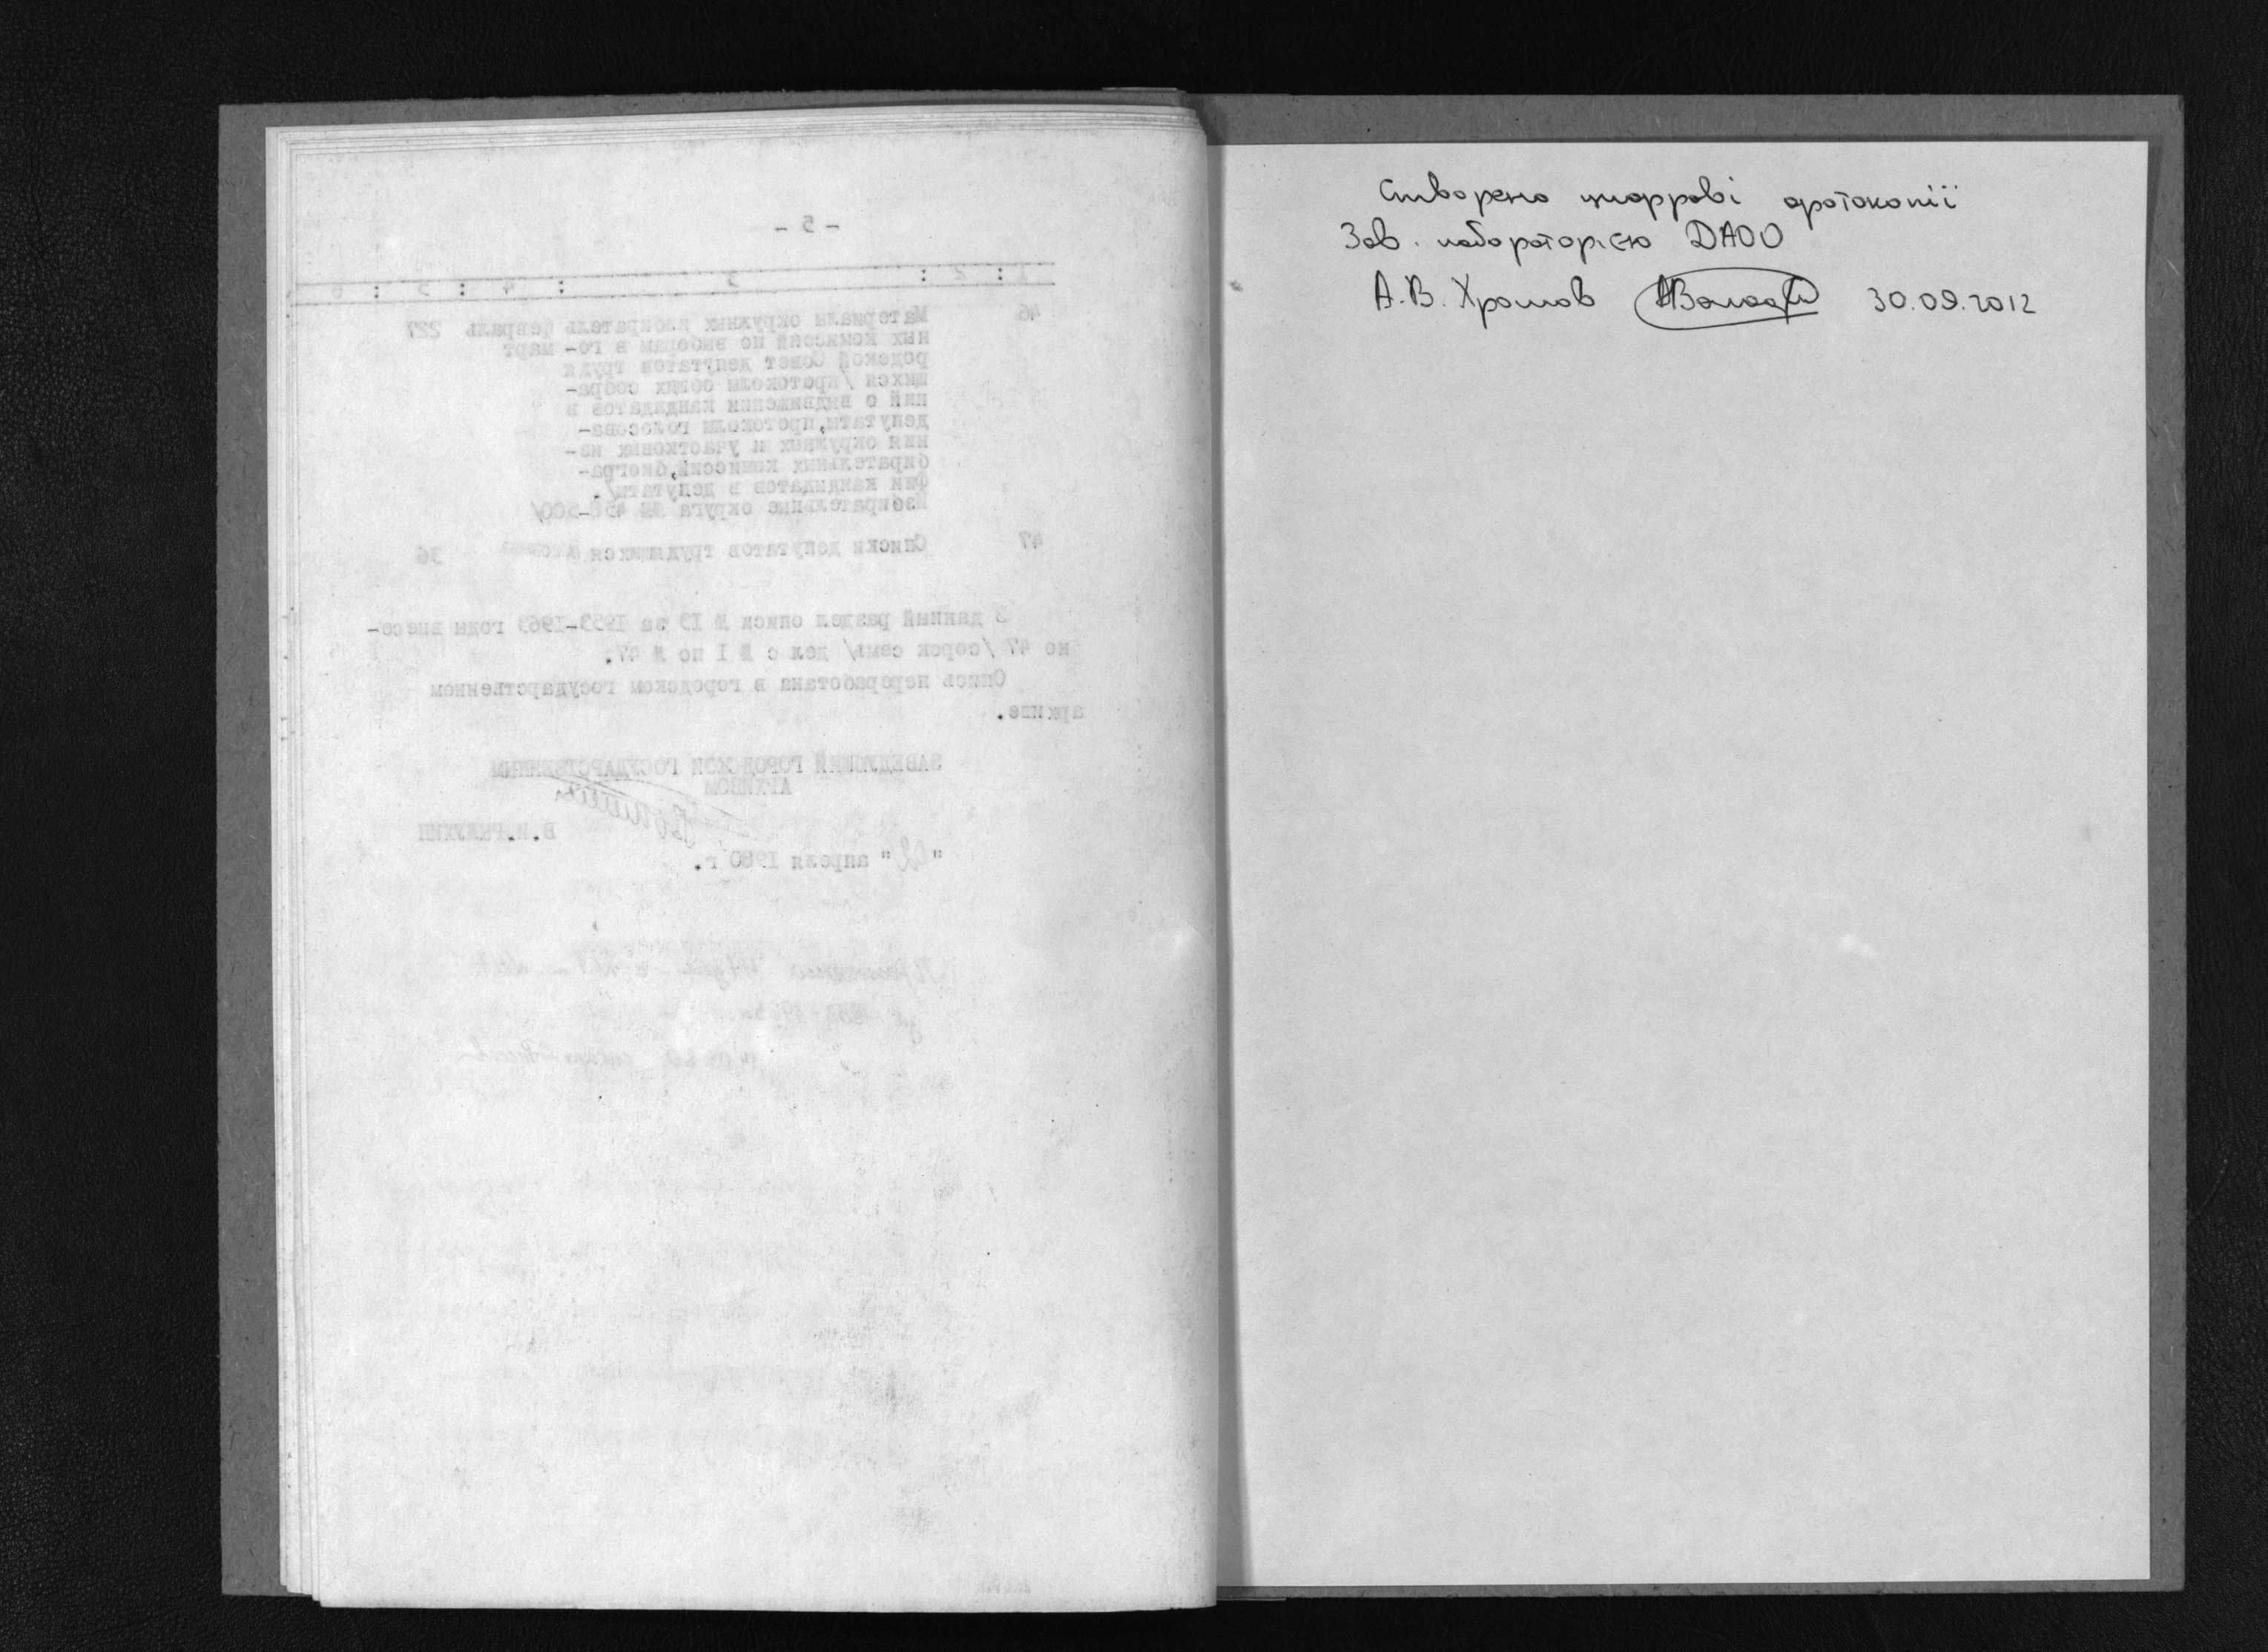 - 5 -
1 : 2 : 3 : 4 : 5 : 6
46 Материалы окружных избиратель февраль 227
ных комиссий по выборам в го- март
родской Совет депутатов трудя
щихся /протоколы общих собра-
ний о выдвижении кандидатов в
депутаты, протоколы голосова-
ния окружных и участковых из-
бирательных комиссий, биогра-
фии кандидатов в депутаты/.
Избирательные округа №№ -500/
47 Списки депутатов трудящихся 36
В данный раздел описи № 13 за 1953-1963 годы внесе-
но 47 /сорок семь/ дел с № 1 по № 47.
Опись переработана в городском государственном
архиве.
ЗАВЕДУЮЩИЙ ГОРОДСКОЙ ГОСУДАРСТВЕННЫМ
АРХИВОМ
В.И.
" " апреля 1980 г.
Створено цифрові фотокопії
Зав. лабораторією ДАОО
А.В. Хромов 30.09.2012